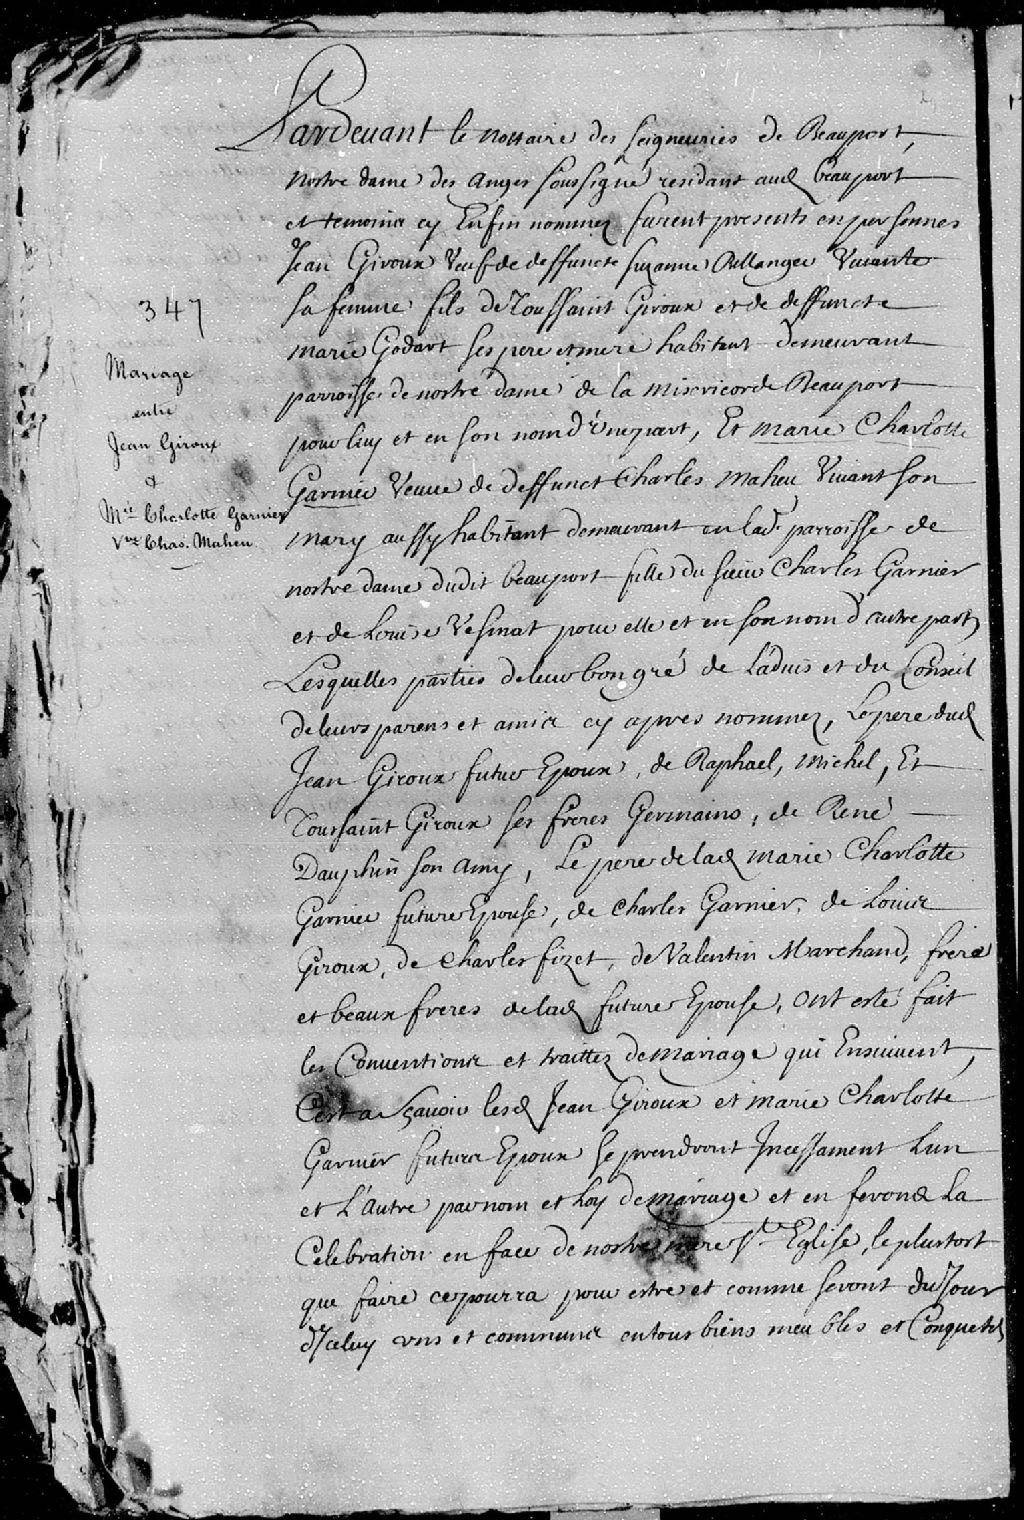 347
Mariage
entre
Jean Giroux
&
Mie Charlotte Garnier
Vve Chas. Maheu
Pardeuant le nottaire des seigneuries de Beauport,
nostre dame des anges soussigné residant aud beauport
et temoins cy Enfin nommez furent presents en personnes
Jean Giroux Veuf de deffuncte suzanne Bellanger Viuante
sa femme fils de Toussaint Giroux et de deffuncte
marie Godart ses pere et mere habitant demeurant
parroisse de nostre dame de la misericorde Beauport
pour luy et en son nom d'une part, Et marie Charlotte
Garnier Veuue de deffunct Charles maheu Viuant son
mary aussy habitant demeurant en lad. parroisse de
nostre dame dudit beauport fille du sieur Charles Garnier
et de Louise Vesinat pour elle et en son nom d'autre part,
Lesquelles parties de leur bon gré de Laduis et du Conseil
de leurs parens et amis cy apres nommez, Le pere dud
Jean Giroux futur Epoux, de Raphael, Michel, Et
Toussaint Giroux ses freres Germains, de René
Dauphin son amy, Le pere de lad marie Charlotte
Garnier future Epouse, de Charles Garnier, de Louis
Giroux, de Charles fizet, de Valentin Marchand, frere
et beaux freres de lad future Epouse, ont esté fait
les Conuentions et traittez de mariage qui Ensuiuent,
Cest a sçauoir lesd Jean Giroux et marie Charlotte
Garnier futurs Epoux se prendront Incessament Lun
et L'autre par nom et Loy de mariage et en feront La
Celebration en face de nostre mere Ste Eglise, le plustost
que faire ce pourra pour estre et comme seront du Jour
d'Iceluy vns et communs en tous biens meubles et Conquets